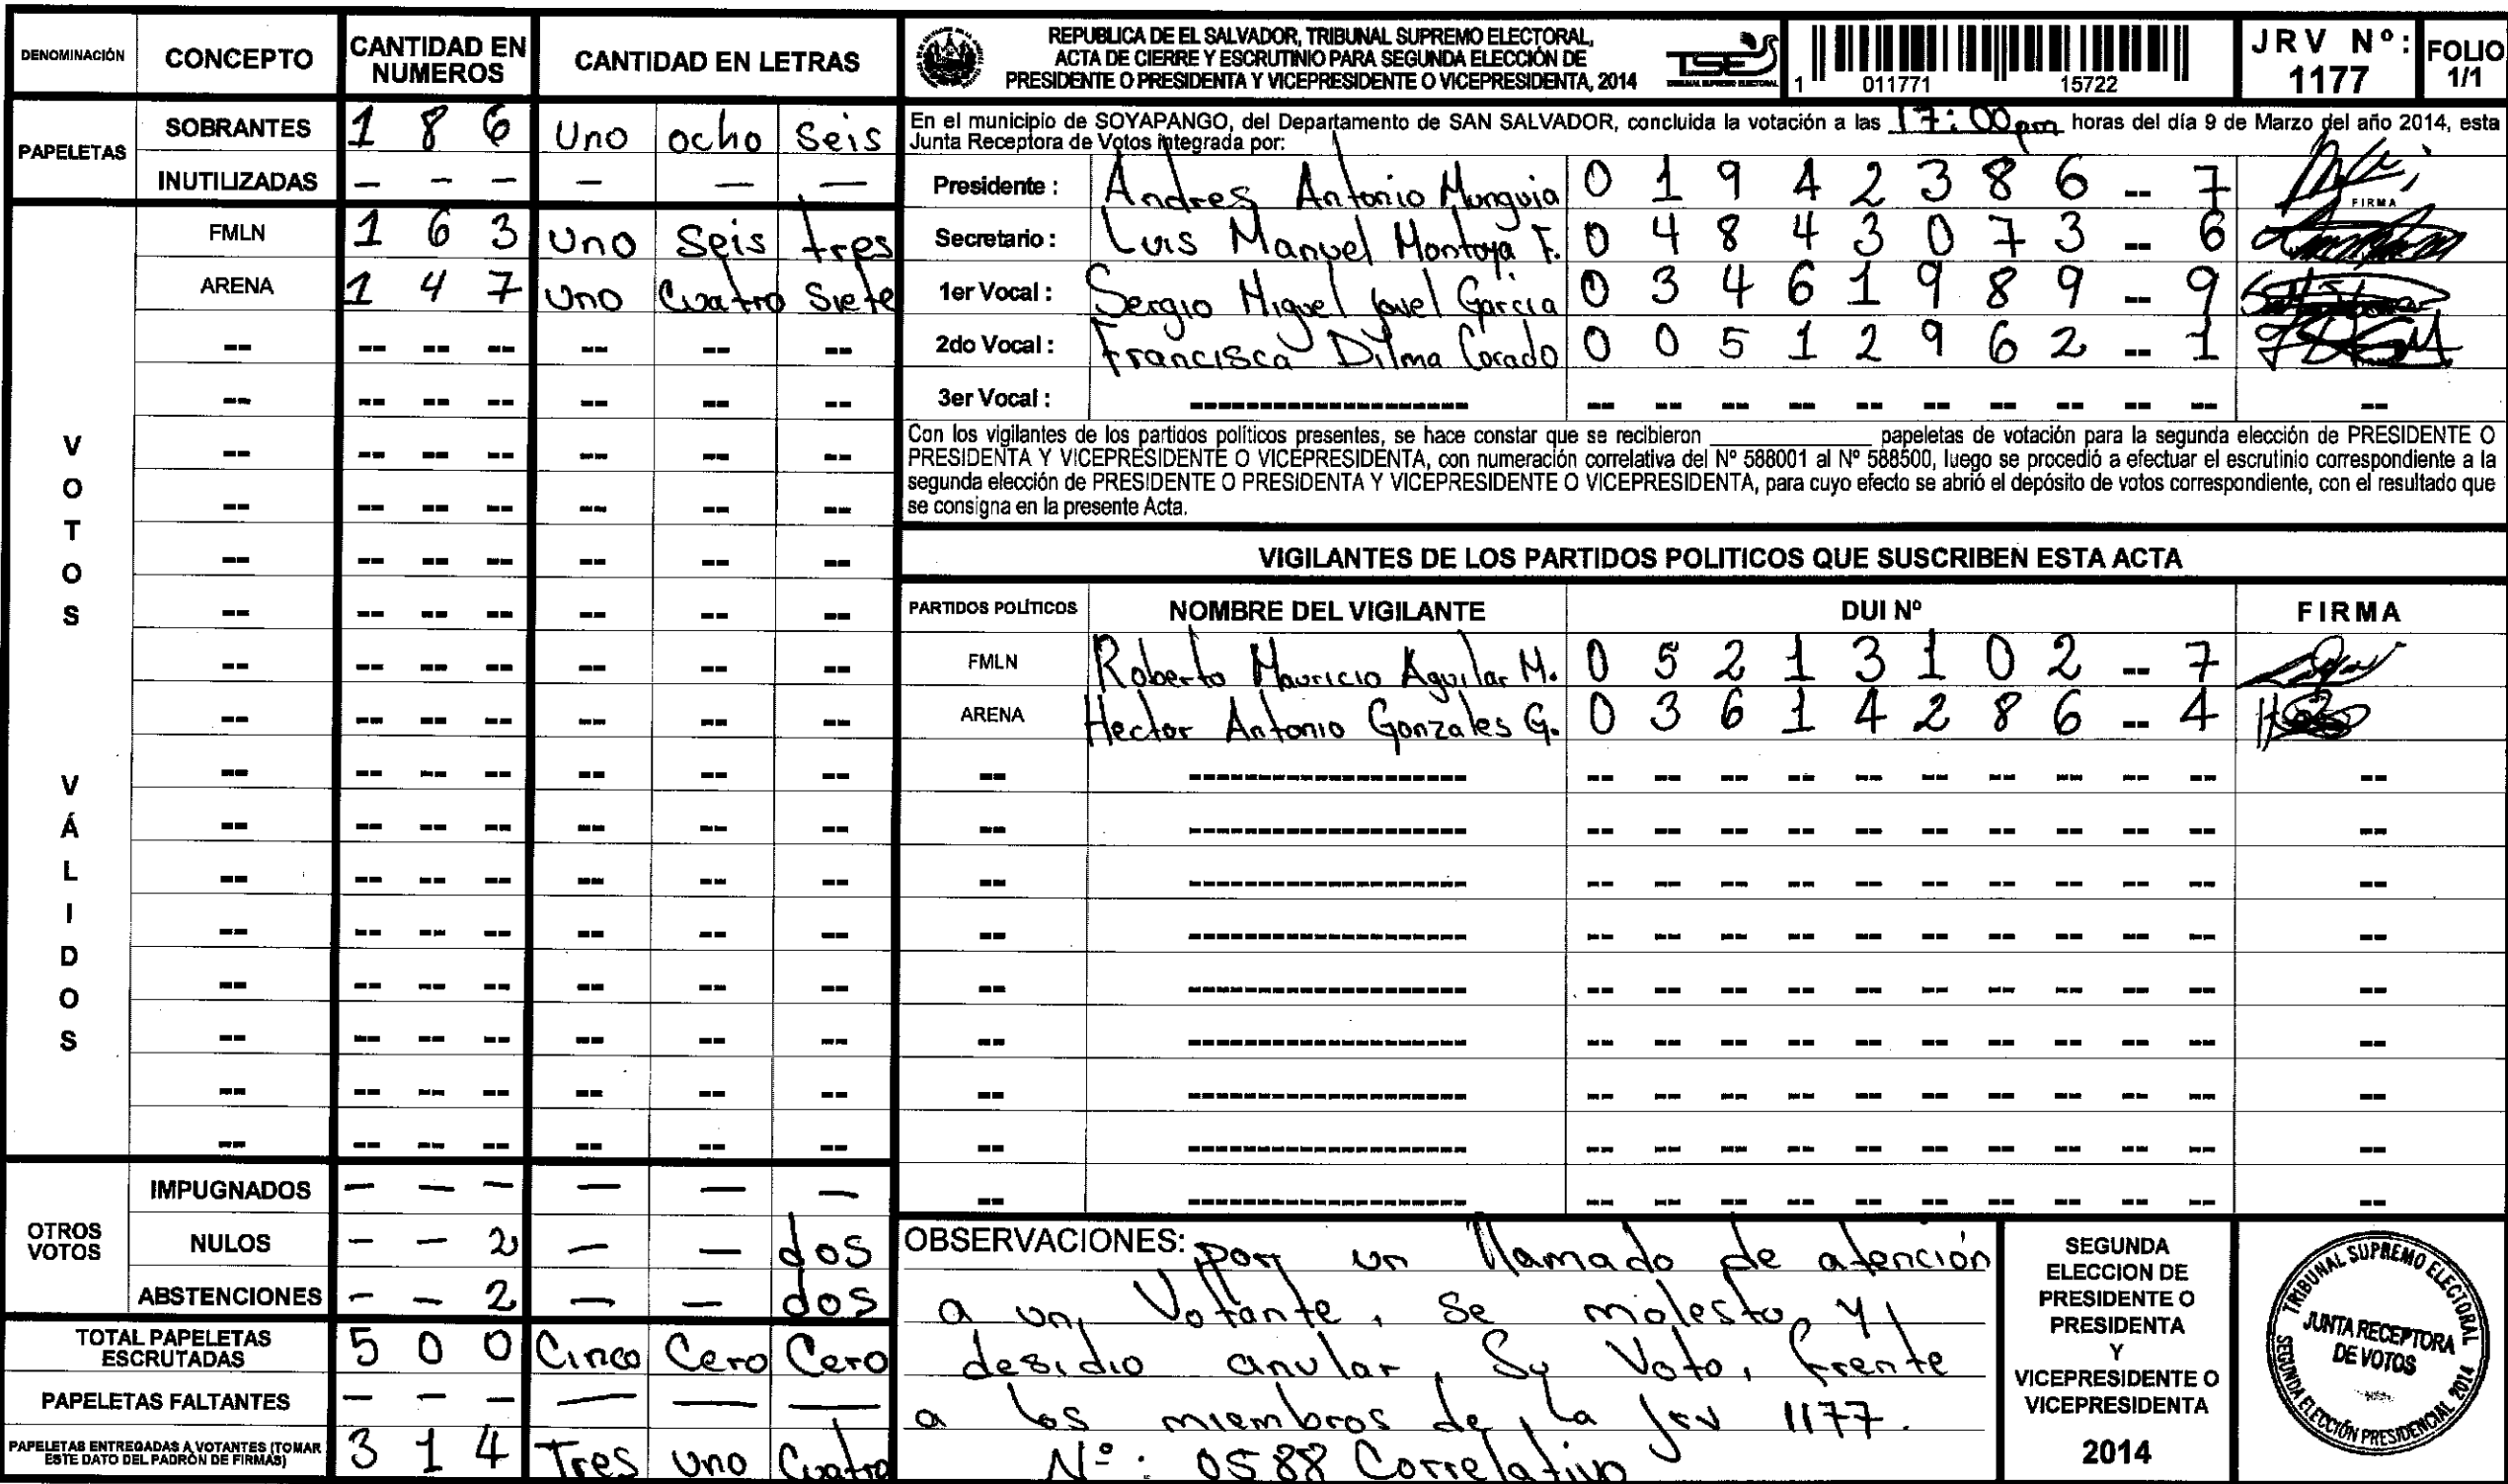 DENOMINACIÓN CONCEPTO CANTIDAD EN NUMEROS CANTIDAD EN LETRAS
PAPELETAS
SOBRANTES 1 8 6 Uno ocho Seis
INUTILIZADAS - - - - - -
VOTOS VÁLIDOS
FMLN 1 6 3 Uno Seis tres
ARENA 1 4 7 Uno Cuatro Siete
OTROS VOTOS
IMPUGNADOS - - - - - -
NULOS - - 2 - - dos
ABSTENCIONES - - 2 - - dos
TOTAL PAPELETAS ESCRUTADAS 5 0 0 Cinco Cero Cero
PAPELETAS FALTANTES - - - - - -
PAPELETAS ENTREGADAS A VOTANTES (TOMAR ESTE DATO DEL PADRÓN DE FIRMAS) 3 1 4 Tres Uno Cuatro
REPUBLICA DE EL SALVADOR, TRIBUNAL SUPREMO ELECTORAL,
ACTA DE CIERRE Y ESCRUTINIO PARA SEGUNDA ELECCIÓN DE
PRESIDENTE O PRESIDENTA Y VICEPRESIDENTE O VICEPRESIDENTA, 2014
TSE
1 011771 15722
JRV Nº: 1177
FOLIO 1/1
En el municipio de SOYAPANGO, del Departamento de SAN SALVADOR, concluida la votación a las 17:00pm horas del día 9 de Marzo del año 2014, esta
Junta Receptora de Votos integrada por:
Presidente : Andres Antonio Munguia 0 1 9 4 2 3 8 6 -- 7
FIRMA
Secretario : Luis Manuel Montoya F. 0 4 8 4 3 0 7 3 -- 6
1er Vocal : Sergio Miguel Jovel Garcia 0 3 4 6 1 9 8 9 -- 9
2do Vocal : Francisca Dilma Corado 0 0 5 1 2 9 6 2 -- 1
3er Vocal :
Con los vigilantes de los partidos políticos presentes, se hace constar que se recibieron ________ papeletas de votación para la segunda elección de PRESIDENTE O
PRESIDENTA Y VICEPRESIDENTE O VICEPRESIDENTA, con numeración correlativa del Nº 588001 al Nº 588500, luego se procedió a efectuar el escrutinio correspondiente a la
segunda elección de PRESIDENTE O PRESIDENTA Y VICEPRESIDENTE O VICEPRESIDENTA, para cuyo efecto se abrió el depósito de votos correspondiente, con el resultado que
se consigna en la presente Acta.
VIGILANTES DE LOS PARTIDOS POLITICOS QUE SUSCRIBEN ESTA ACTA
PARTIDOS POLÍTICOS NOMBRE DEL VIGILANTE DUI Nº FIRMA
FMLN Roberto Mauricio Aguilar M. 0 5 2 1 3 1 0 2 -- 7
ARENA Hector Antonio Gonzales G. 0 3 6 1 4 2 8 6 -- 4
OBSERVACIONES: por un llamado de atención
a un Votante, Se molesto y
desidio anular Su Voto, frente
a los miembros de la jrv 1177.
Nº: 0588 Correlativo
SEGUNDA
ELECCION DE
PRESIDENTE O
PRESIDENTA
Y
VICEPRESIDENTE O
VICEPRESIDENTA
2014
TRIBUNAL SUPREMO ELECTORAL
JUNTA RECEPTORA
DE VOTOS
SEGUNDA ELECCIÓN PRESIDENCIAL 2014